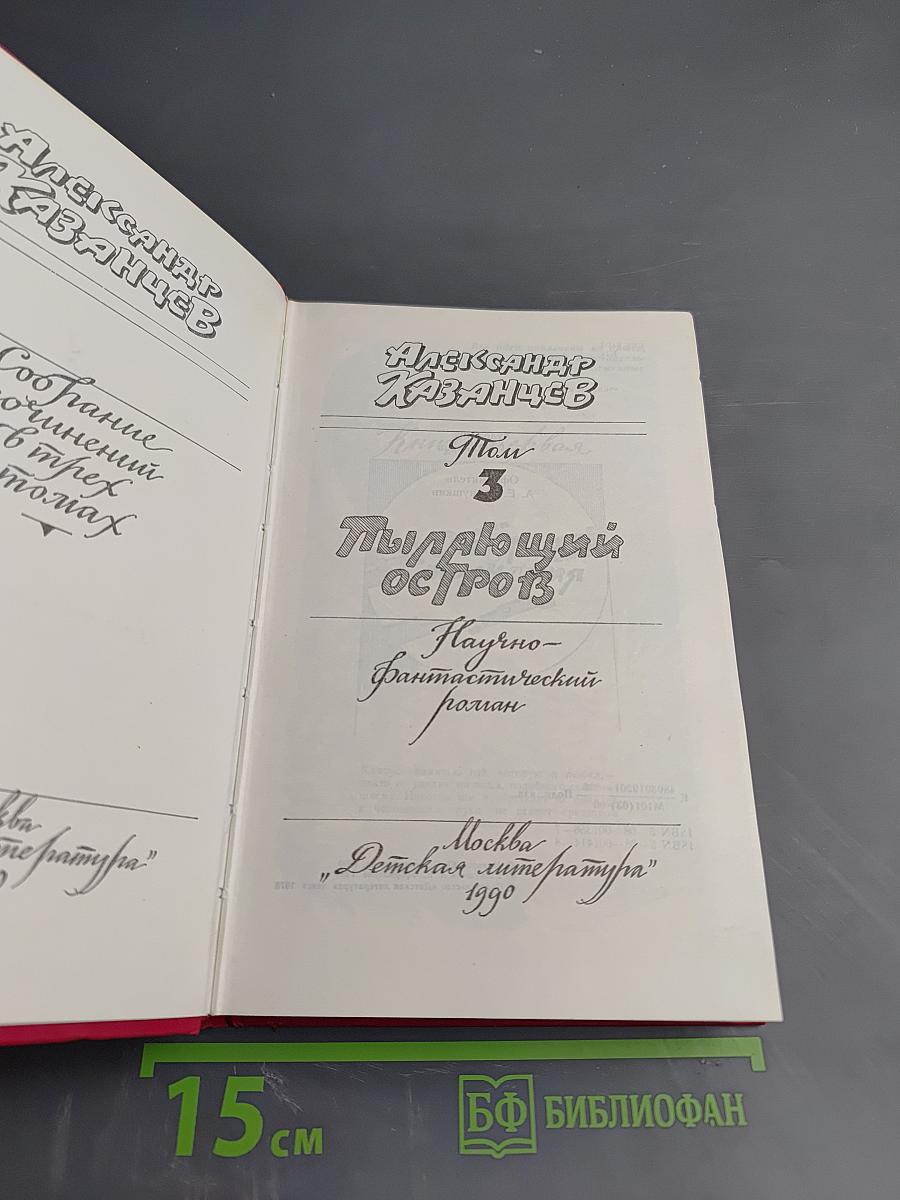 Александр
Казанцев
Собрание
сочинений
в трех
томах
Александр
Казанцев
Том
3
Пылающий
остров
Научно-
фантастический
роман
Москва
„Детская литература"
1990
15 см
БФ БИБЛИОФАН